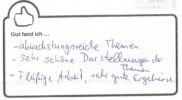 Gut fand ich ...
- abwechslungsreiche Themen
- sehr schöne Darstellungen der
Themen
- Fleißige Arbeit, sehr gute Ergebnisse